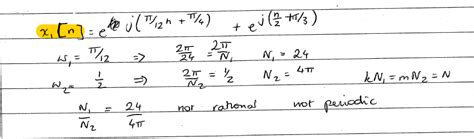 x₁[n] = e^j(π/12 n + π/4) + e^j(n/2 + π/3)
ω₁ = π/12 ⇒ 2π/24 = 2π/N₁ N₁ = 24
ω₂ = 1/2 ⇒ 2π/N₂ = 1/2 N₂ = 4π kN₁ = mN₂ = N
N₁/N₂ = 24/4π not rational not periodic